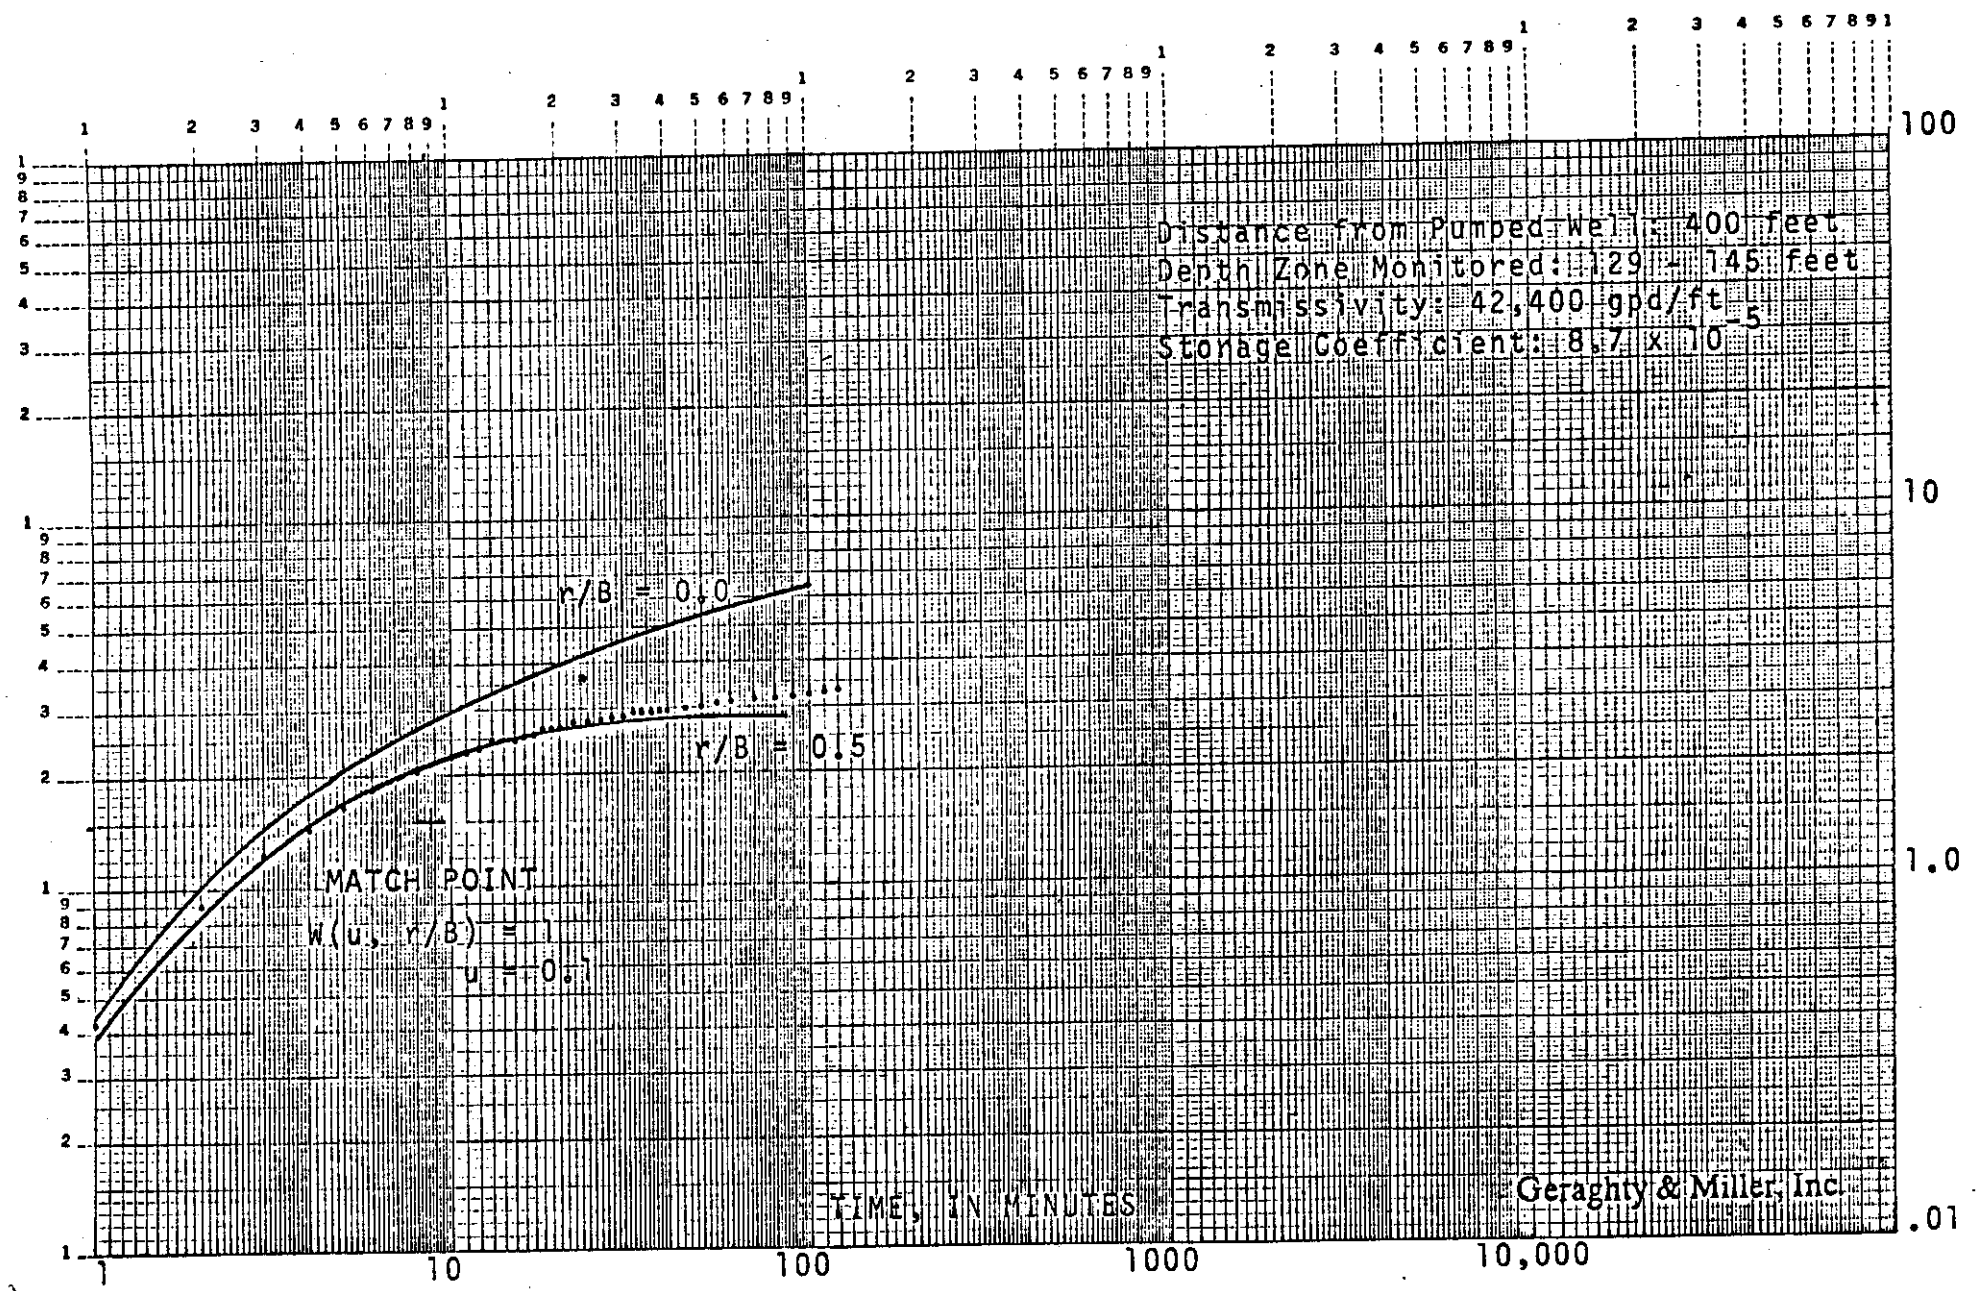 1 2 3 4 5 6 7 8 9 1 2 3 4 5 6 7 8 9 1 2 3 4 5 6 7 8 9 1 2 3 4 5 6 7 8 9 1 2 3 4 5 6 7 8 9 1
100
10
1.0
.01
1
9
8
7
6
5
4
3
2
1
9
8
7
6
5
4
3
2
1
9
8
7
6
5
4
3
2
1
Distance from Pumped Well: 400 feet
Depth Zone Monitored: 129 - 145 feet
Transmissivity: 42,400 gpd/ft
Storage Coefficient: 8.7 x 10-5
r/B = 0.0
r/B = 0.5
MATCH POINT
W(u, r/B) = 1
u = 0.1
TIME, IN MINUTES
Geraghty & Miller, Inc.
1 10 100 1000 10,000